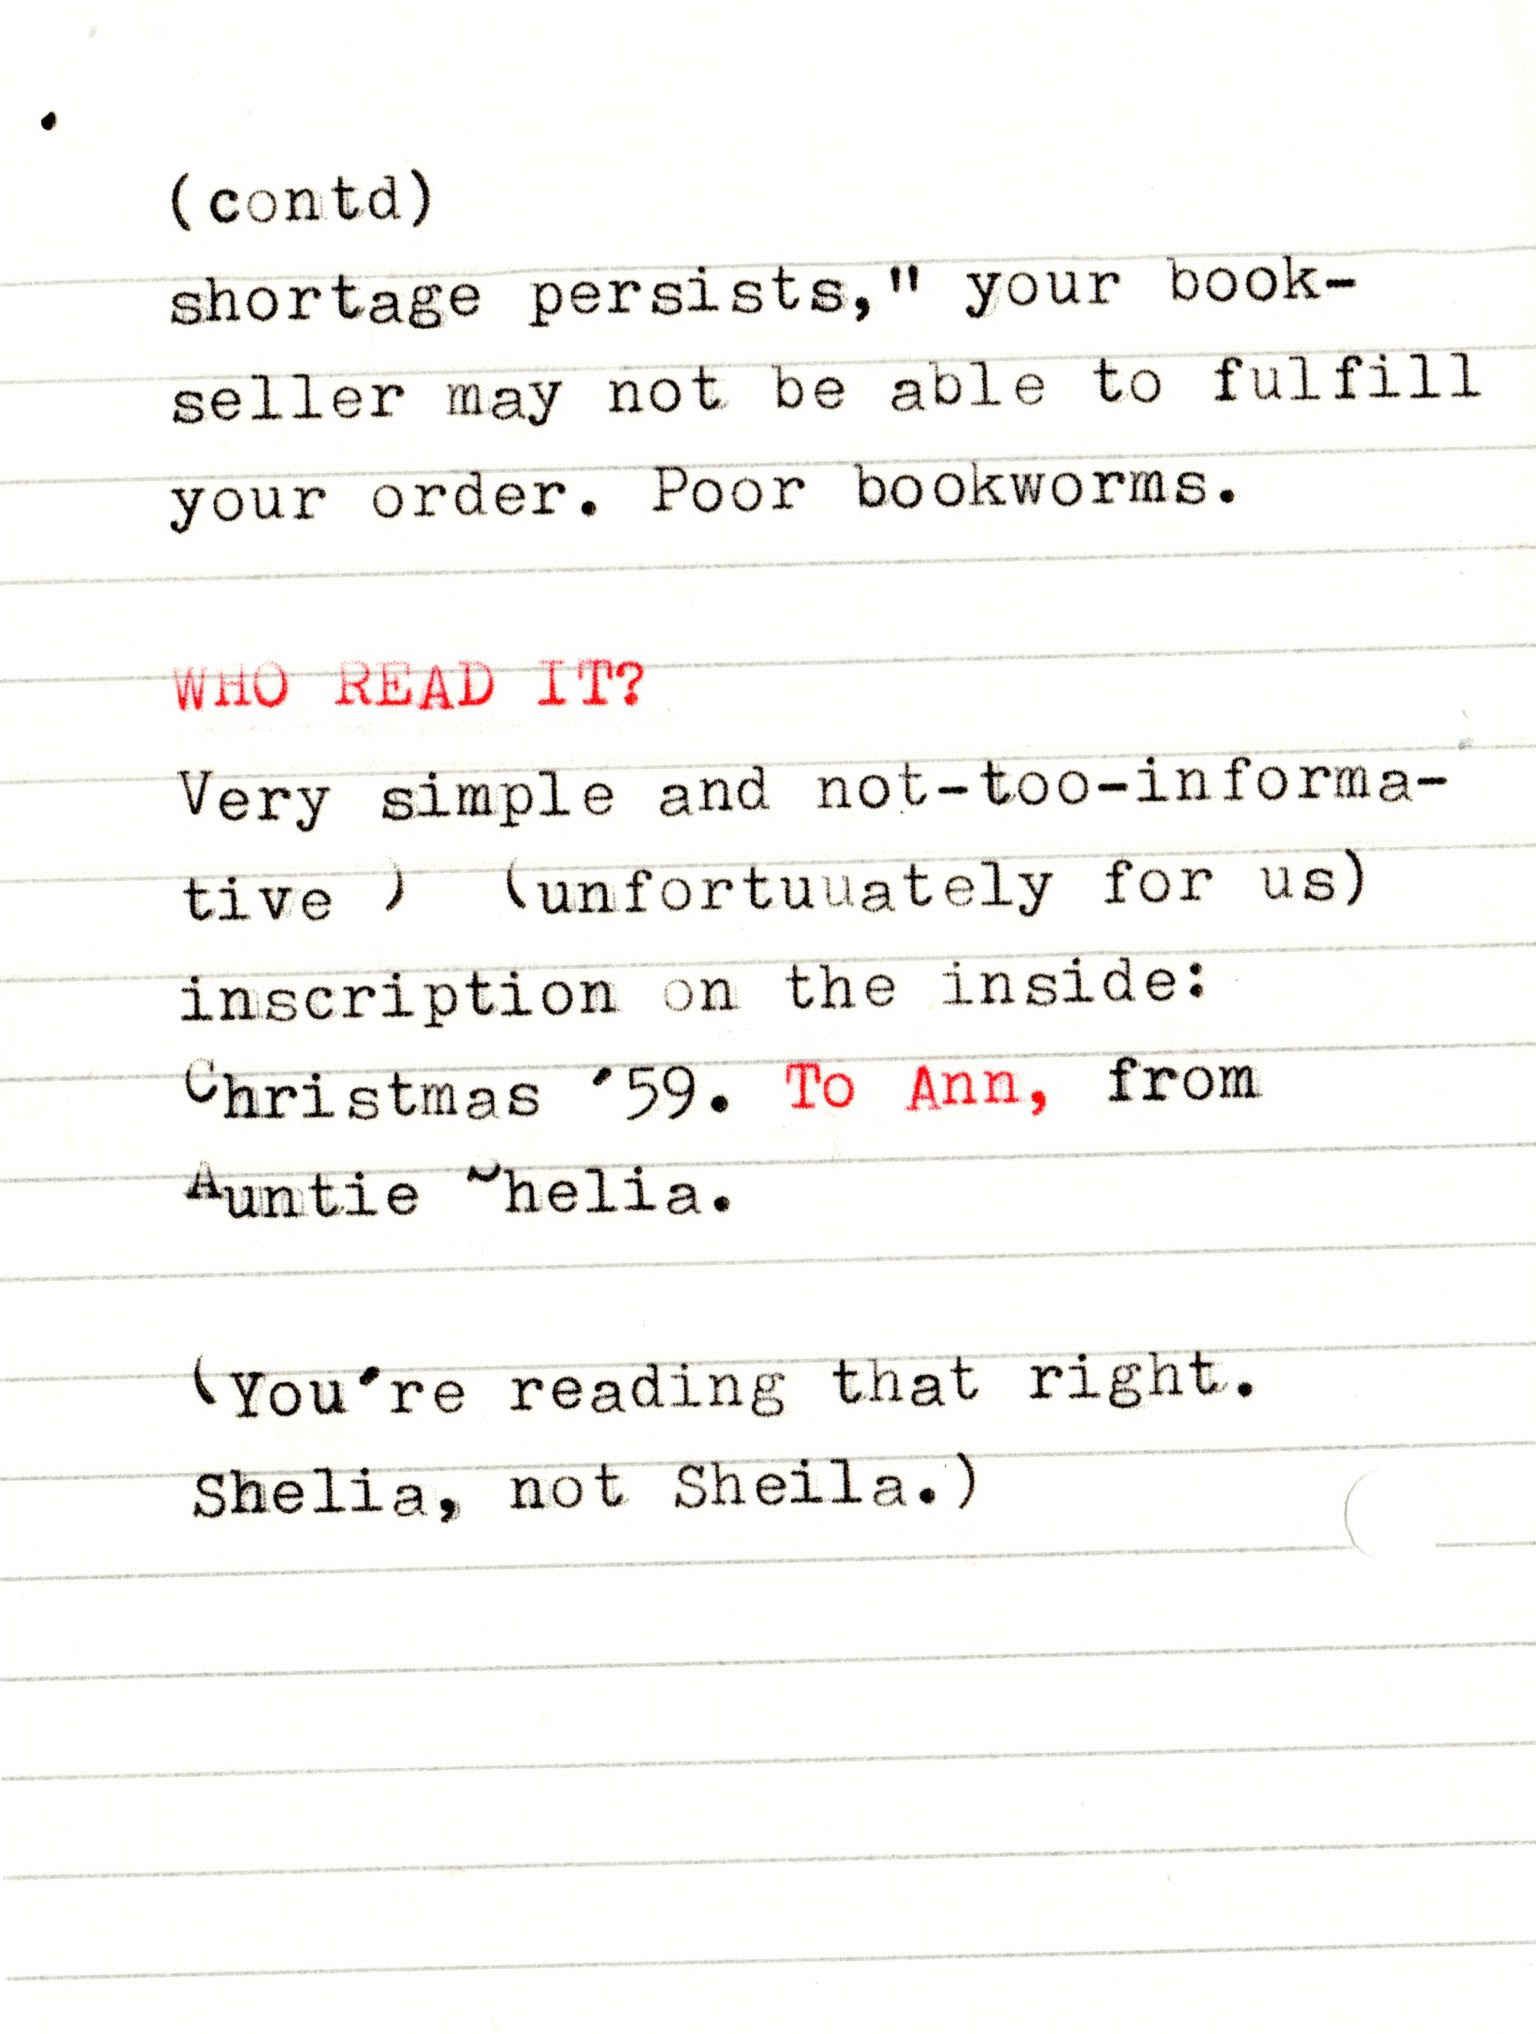 (contd)
shortage persists," your book-
seller may not be able to fulfill
your order. Poor bookworms.
WHO READ IT?
Very simple and not-too-informa-
tive ) (unfortuuately for us)
inscription on the inside:
Christmas '59. To Ann, from
Auntie Shelia.
(You're reading that right.
Shelia, not Sheila.)